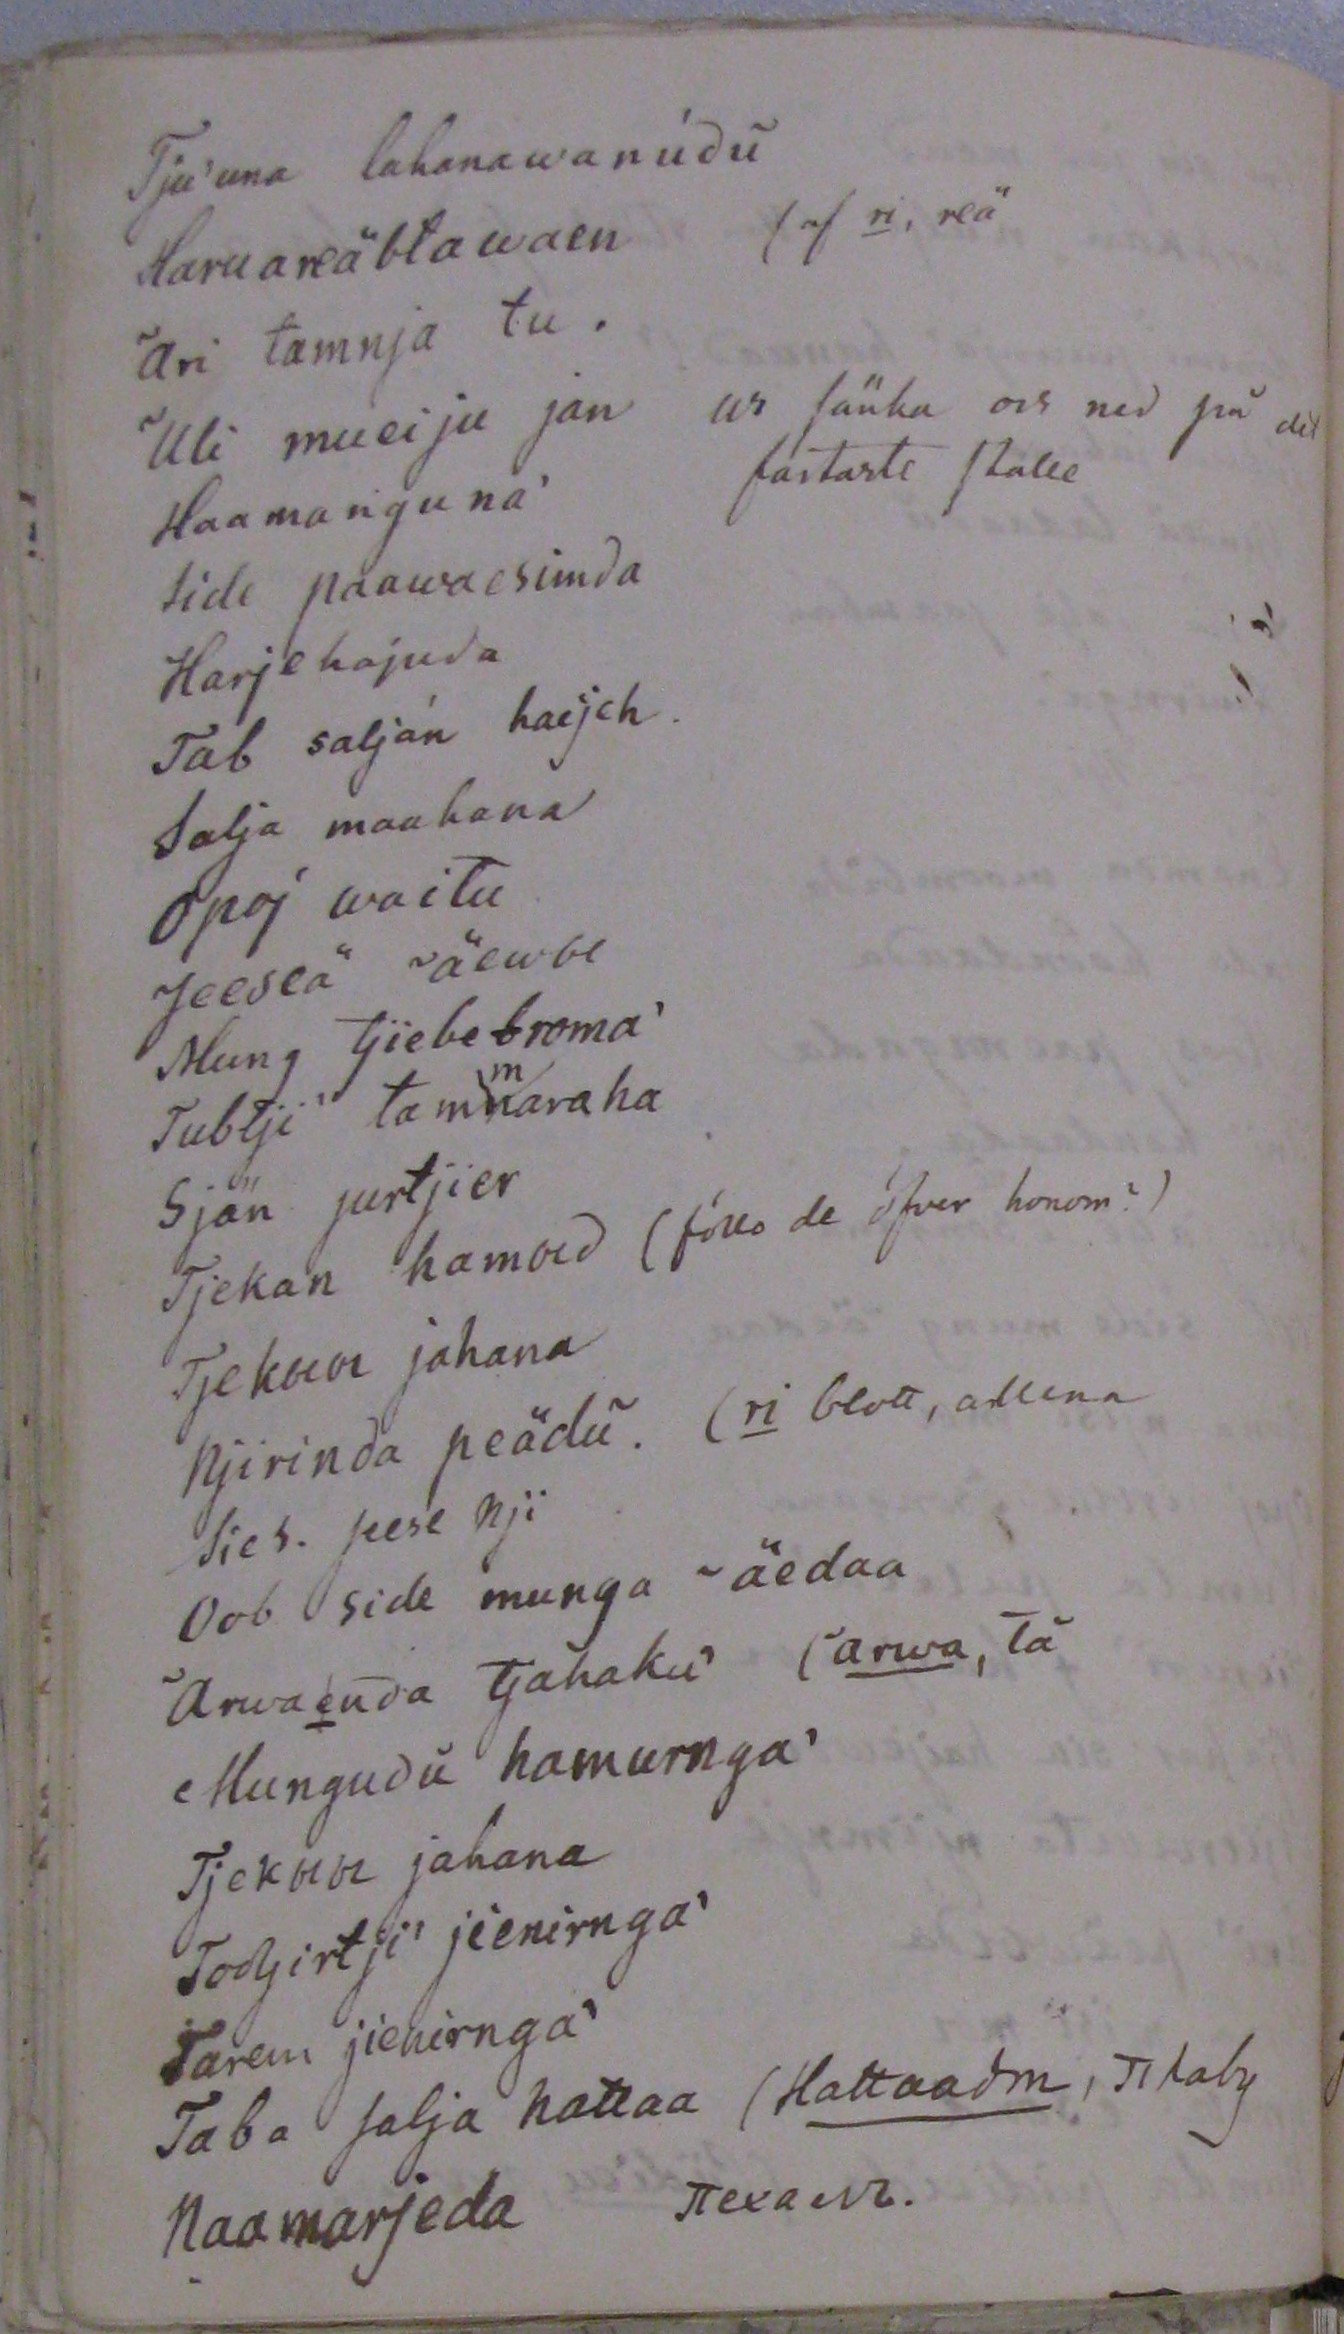 Tju'una lahanawanúdũ
Haruareäbtawaen (af ri, reä
Ãri tamnja tu.
Ũli mueiju jan us sänka oss ned på det
Haamanguna' fastaste stalle
Side paawaesimda
Harjehajuda
Tab salján haejeh.
Salja maahana
Opoj waitu
Jeeseä ˜äewbe
Mung tjiebebroma'
Tubtji' tammaraha
Sjän jurtjier
Tjekan hamoed (föllo de öfver honom?)
Tjekoeoe jahana
Njirinda peädũ. (ri blott, allena
Sies. peese nji
Oob side munga ˜äedaa
Ãrwaenda tjahaku' (˜arwa, tä
Mungudũ hamurnga'
Tjekoeoe jahana
Todjirtji' jienirnga'
Tarem jienirnga'
Taba salja hattaa (Hattaadm,
Naamarjeda пехаемъ.